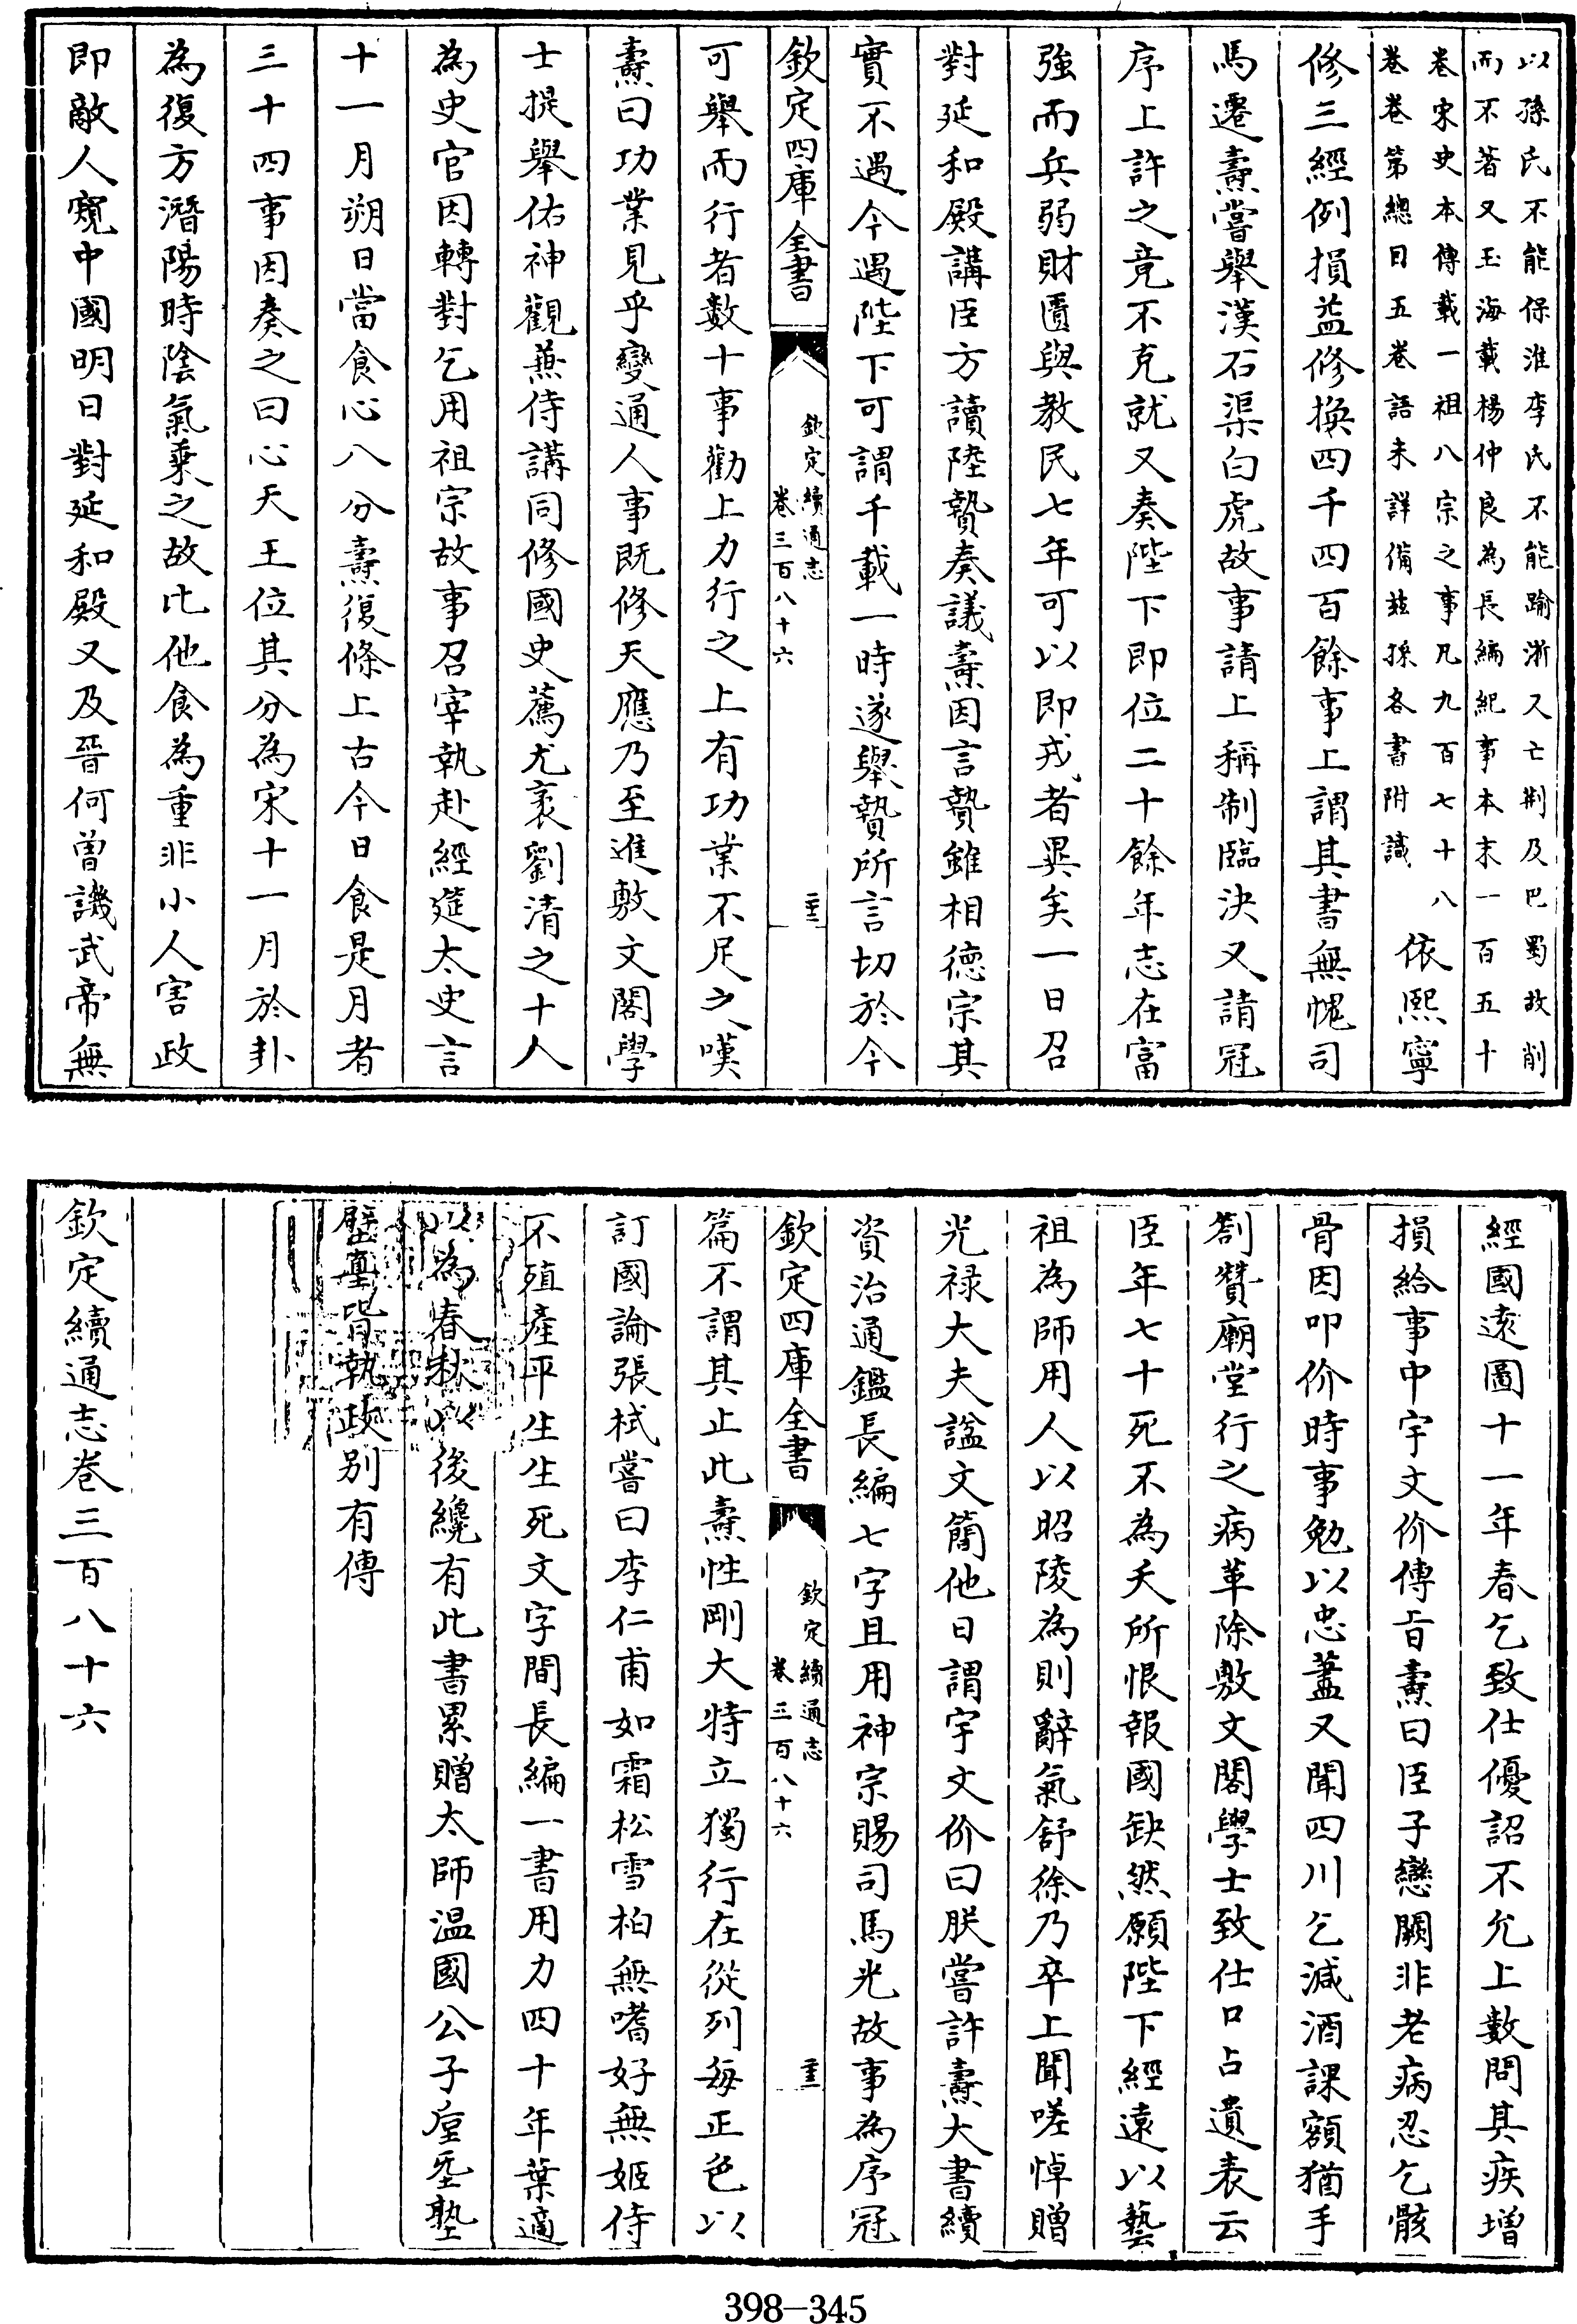 以孫氏不能保淮李氏不能踰淅又亡荆及巴蜀故削
而不著又玉海載楊仲良為長編紀事本末一百五十
卷宋史本傳載一祖八宗之事凡九百七十八
卷卷第總目五卷語未詳備玆採各書附識
依熙寧
修三經例損益修換四千四百餘事上謂其書無愧司
馬遷燾嘗舉漢石渠白虎故事請上稱制臨決又請冠
序上許之竟不克就又奏陛下即位二十餘年志在富
強而兵弱財匱與教民七年可以即戎者異矣一日召
對延和殿講臣方讀陸贄奏議燾因言贄雖相德宗其
實不遇今遇陛下可謂千載一時遂舉贄所言切於今
欽定四庫全書
欽定續通志
卷三百八十六
可舉而行者數十事勸上力行之上有功業不足之嘆
燾曰功業見乎變通人事既修天應乃至進敷文閣學
士提舉佑神觀兼侍講同修國史薦尤袤劉清之十人
為史官因轉對乞用祖宗故事召宰執赴經筵太史言
十一月朔日當食心八分燾復條上古今日食是月者
三十四事因奏之曰心天王位其分為宋十一月於卦
為復方潛陽時陰氣乗之故比他食為重非小人害政
即敵人窺中國明日對延和殿又及晉何曾譏武帝無
經國遠圖十一年春乞致仕優詔不允上數問其疾增
損給事中宇文价傳旨燾曰臣子戀闕非老病忍乞骸
骨因叩价時事勉以忠藎又聞四川乞減酒課額猶手
劄贊廟堂行之病革除敷文閣學士致仕口占遺表云
臣年七十死不為夭所恨報國缺然願陛下經遠以藝
祖為師用人以昭陵為則辭氣舒徐乃卒上聞嗟悼贈
光禄大夫諡文簡他日謂宇文价曰朕嘗許燾大書續
資治通鑑長編七字且用神宗賜司馬光故事為序冠
欽定四庫全書
欽定續通志
卷三百八十六
篇不謂其止此燾性剛大特立獨行在從列每正色以
訂國論張栻嘗曰李仁甫如霜松雪柏無嗜好無姬侍
不殖產平生生死文字間長編一書用力四十年葉適
以為春秋以後纔有此書累贈太師温國公子垕塾
壁𡌴皆執政别有傳
欽定續通志卷三百八十六
398-345